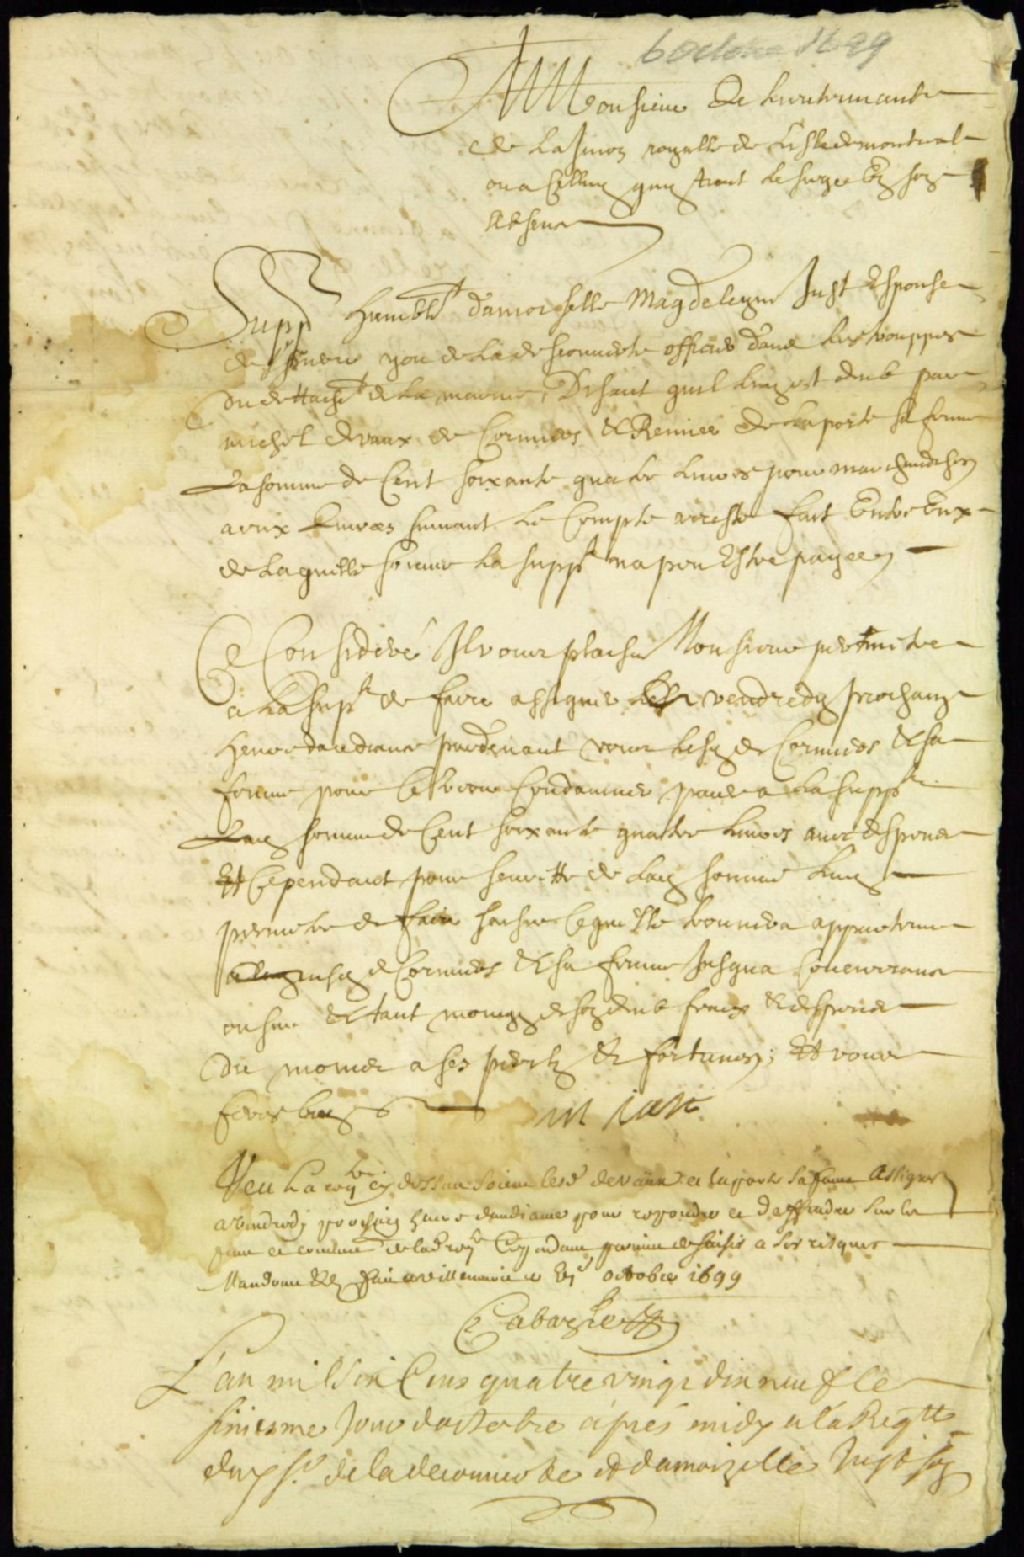 6 octobre 1699
A Monsieur Le Lieutenant
de La Juron royalle de L'isle de montreal
ou a Celluy quy tient Le siege En son
Absence
Supp humblt damoiselle Magdeleyne Just Espouse
de pierre you de La descouverte officier dans Les trouppes
du dettachmt de La marine, Disant quil Luy est deub par
michel devaux de Cornuos & Reniee de Laporte sa femme
La somme de Cent soixante quatre Livres pour marchandises
a eux Livrees suivant Le Compte arresté fait Entre Eux
de Laquelle somme La suppte na peu Estre payee
Ce Consideré Il vous plaise Monsieur permettre
a La suppte de faire assigner a vendredy prochain
heure daudiance pardevant vous Ledt de Cornuos & sa
femme pour Se voir Condamner payer a La suppte
Lad somme de Cent soixante quatre Livres avec despens
Et Cependant pour seurette de Lad somme Luy
permettre de faire saisir Ce quelle trouvera appartenir
aud de Cornuos & sa femme Jusqua Concurrance
ou sur Estant moings de son deub frais & despens
du moins a ses perils & fortunes; Et vous
ferez bien m just
Veu La reqte cy dessus soient lesd devaux et laporte sa femme Assignez
a vendredy prochain heure daudiance pour repondre et deffendre sur les
fins et conclus de lad reqte Cependant permis de saisir a ses risques
Mandons &c fait a villemarie ce vj octobre 1699
C a bazire
L'an mil Six Cens quatre vingt dix neuf le
sixiesme Jour doctobre apres midy a la Reqtte
du sr de la decouverte et damoizelle Just sa